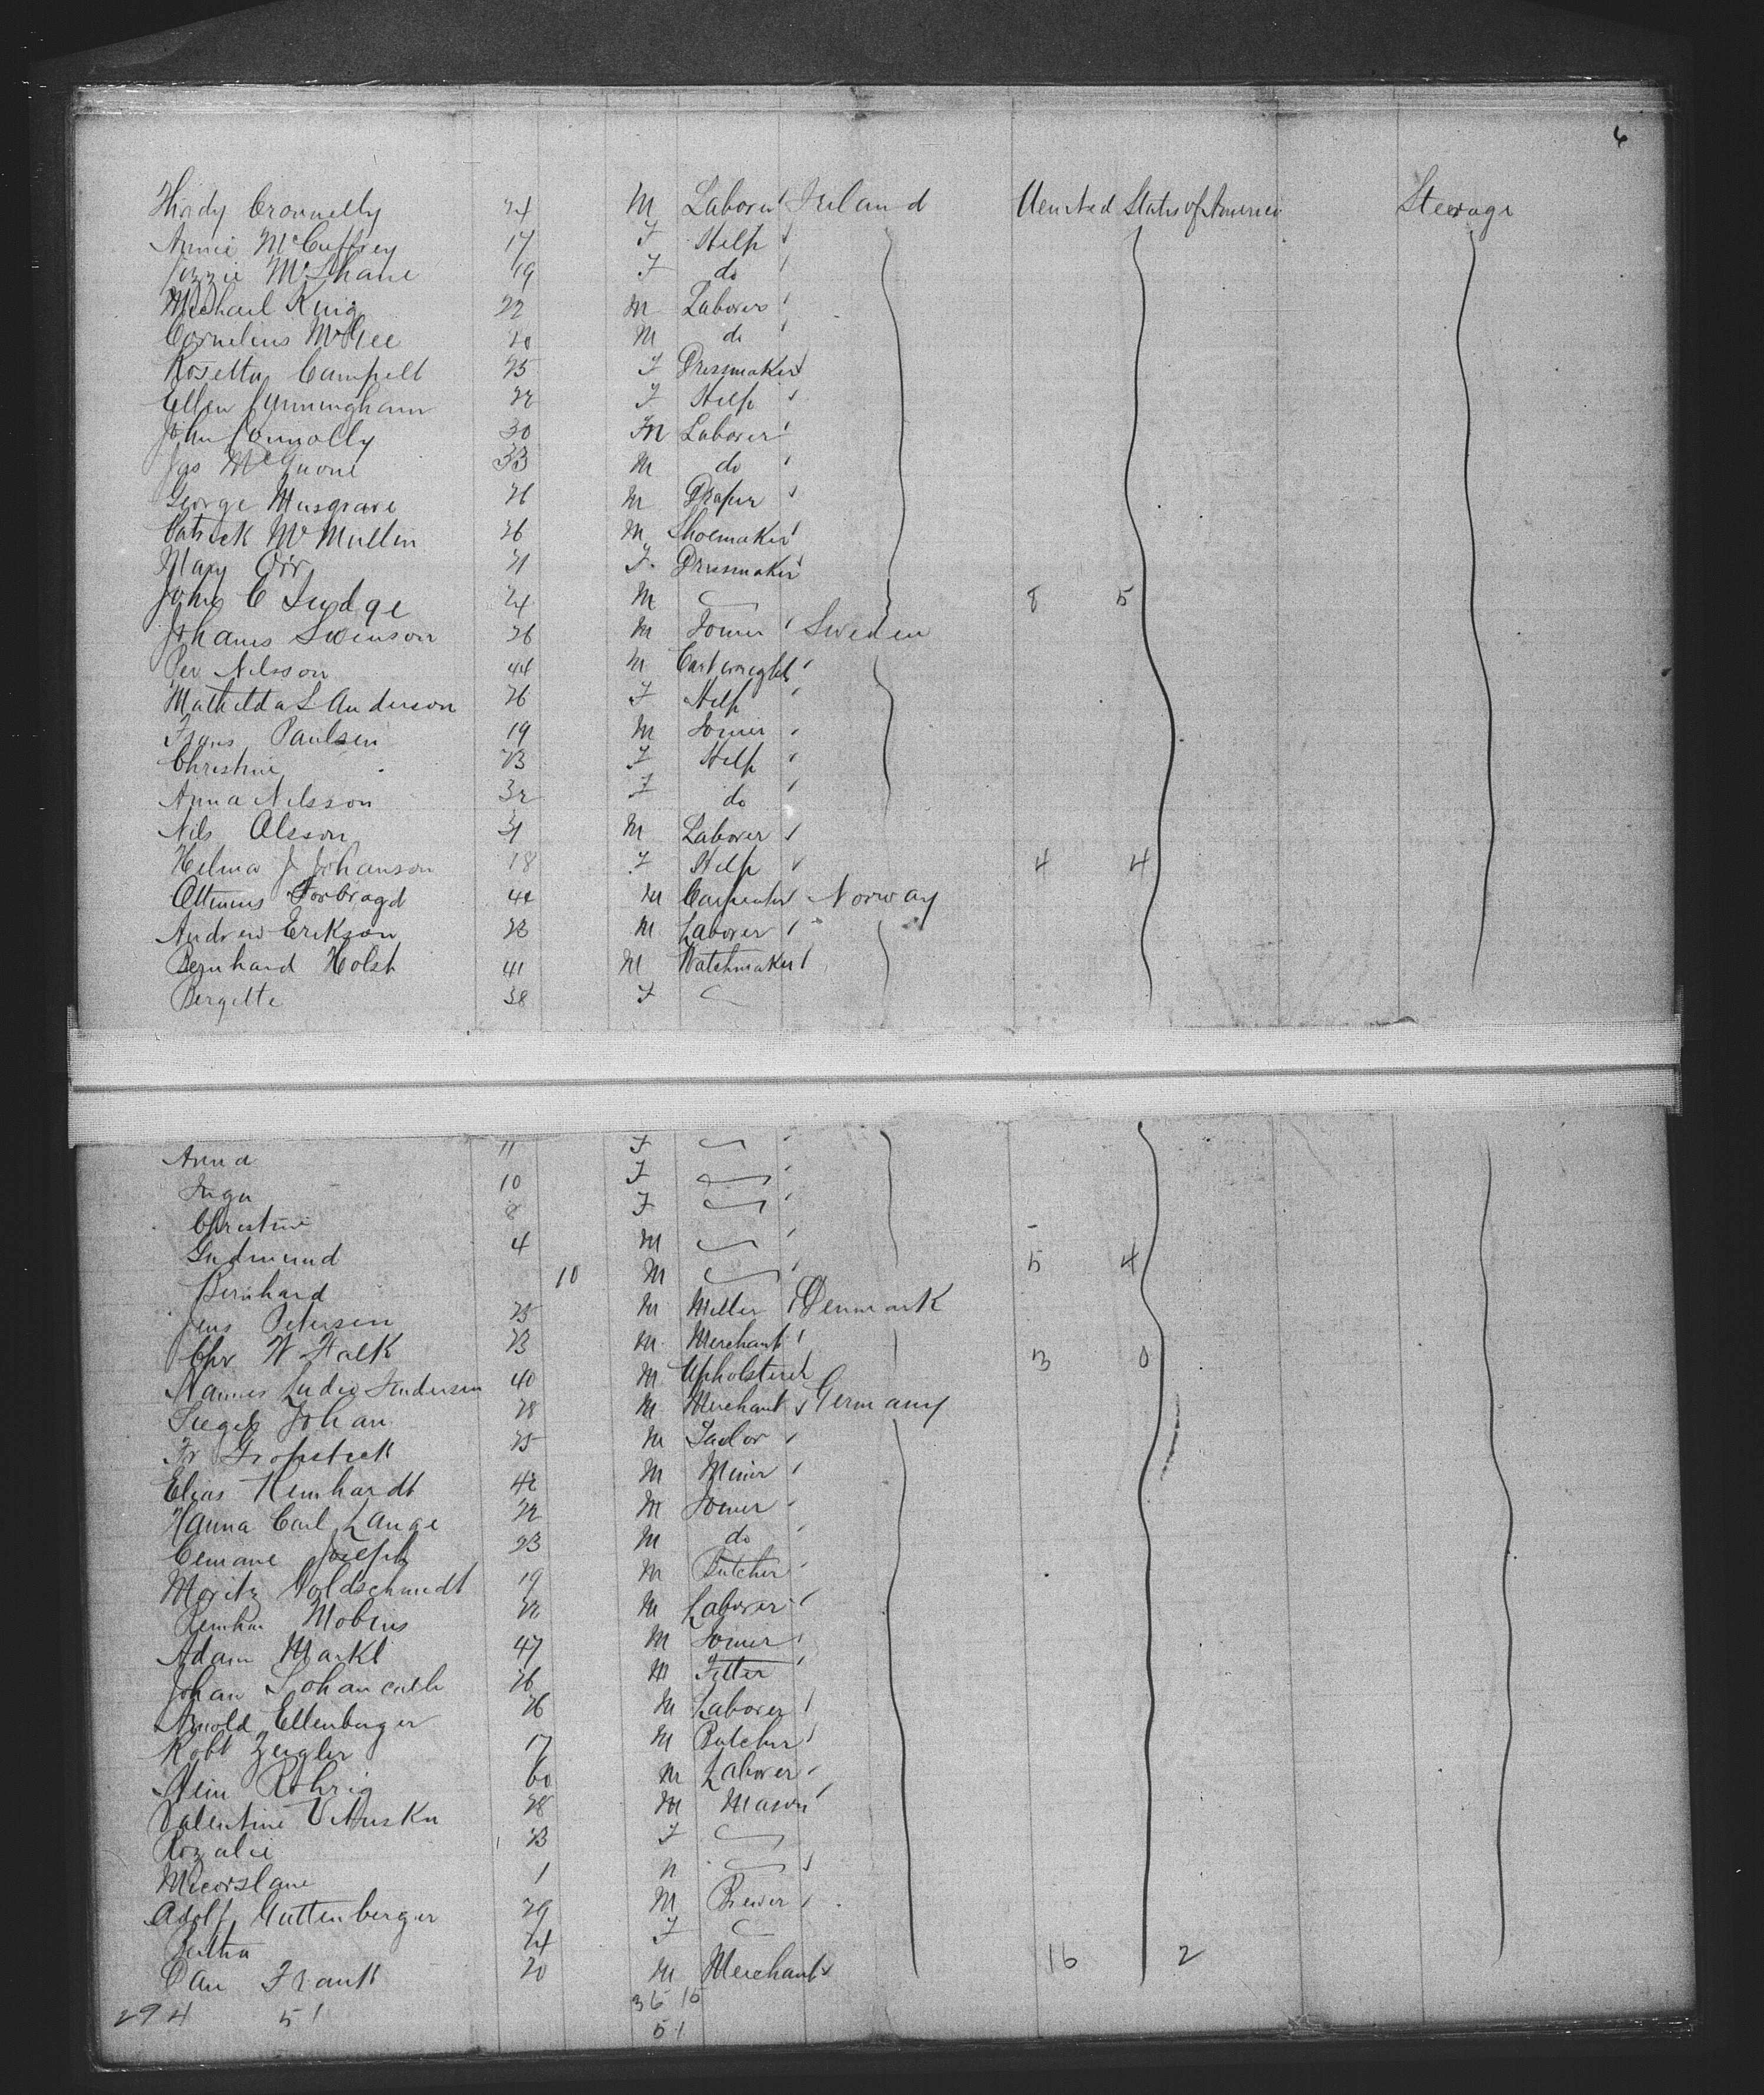 6
Hindy Cronnelly 24 M Laborer Ireland United States of America Steerage
Annie McCuffrey 17 F Help
Lizzie McShane 19 F do
Michael King 22 M Laborer
Cornelius McGee 20 M do
Rosetta Campell 25 F Dressmaker
Ellen Cunningham 22 F Help
John Connolly 30 M Laborer
Jas 33 M do
George Musgrave 26 M Draper
Patrick McMullin 26 M Shoemaker
Mary Orr 21 F Dressmaker
John C Judge 24 M 8 5
Johanes Swenson 26 M Joiner Sweden
Per Nilsson 44 M Cartwright
Mathilda L Anderson 26 F Help
Frans Paulsen 19 M Joiner
Christine 23 F Help
Anna Nilsson 32 F do
Nils Olsson 31 M Laborer
Helma J Johanson 18 F Help 4 4
Forbragd M Carpenter Norway
Andrew Erikson 23 M Laborer
Bernhard Holst 41 M Watchmaker
Bergitte 38 F
Anna 11 F
Inga 10 F
Christine 8 F
Gudmund 4 M 5 4
Bernhard 10 M
Jens Petersen 25 M Miller Denmark
Chr W Falk 23 M Merchant 3 0
Hannes Ludv Andersen 40 M Upholsterer
Siegel Johan 28 M Merchant Germany
Fr 25 M Tailor
Elias Kemhardt 42 M Miner
Hanna Carl Lange 22 M Joiner
Joseph 23 M do
Moritz Goldschmidt 19 M Butcher
Mobius 22 M Laborer
Adam Markl 47 M Joiner
Johan 26 M Fitter
Arnold Ellenberger 26 M Laborer
Robt Zeigler 17 M Butcher
Hein Rohrig 60 M Laborer
Valentine 28 M Mason
Rozalie 23 F
1
Adolf Guttenberger 29 M Brewer
Bertha 24 F
Frank 20 M Merchant 16 2
294 51 36 15
51